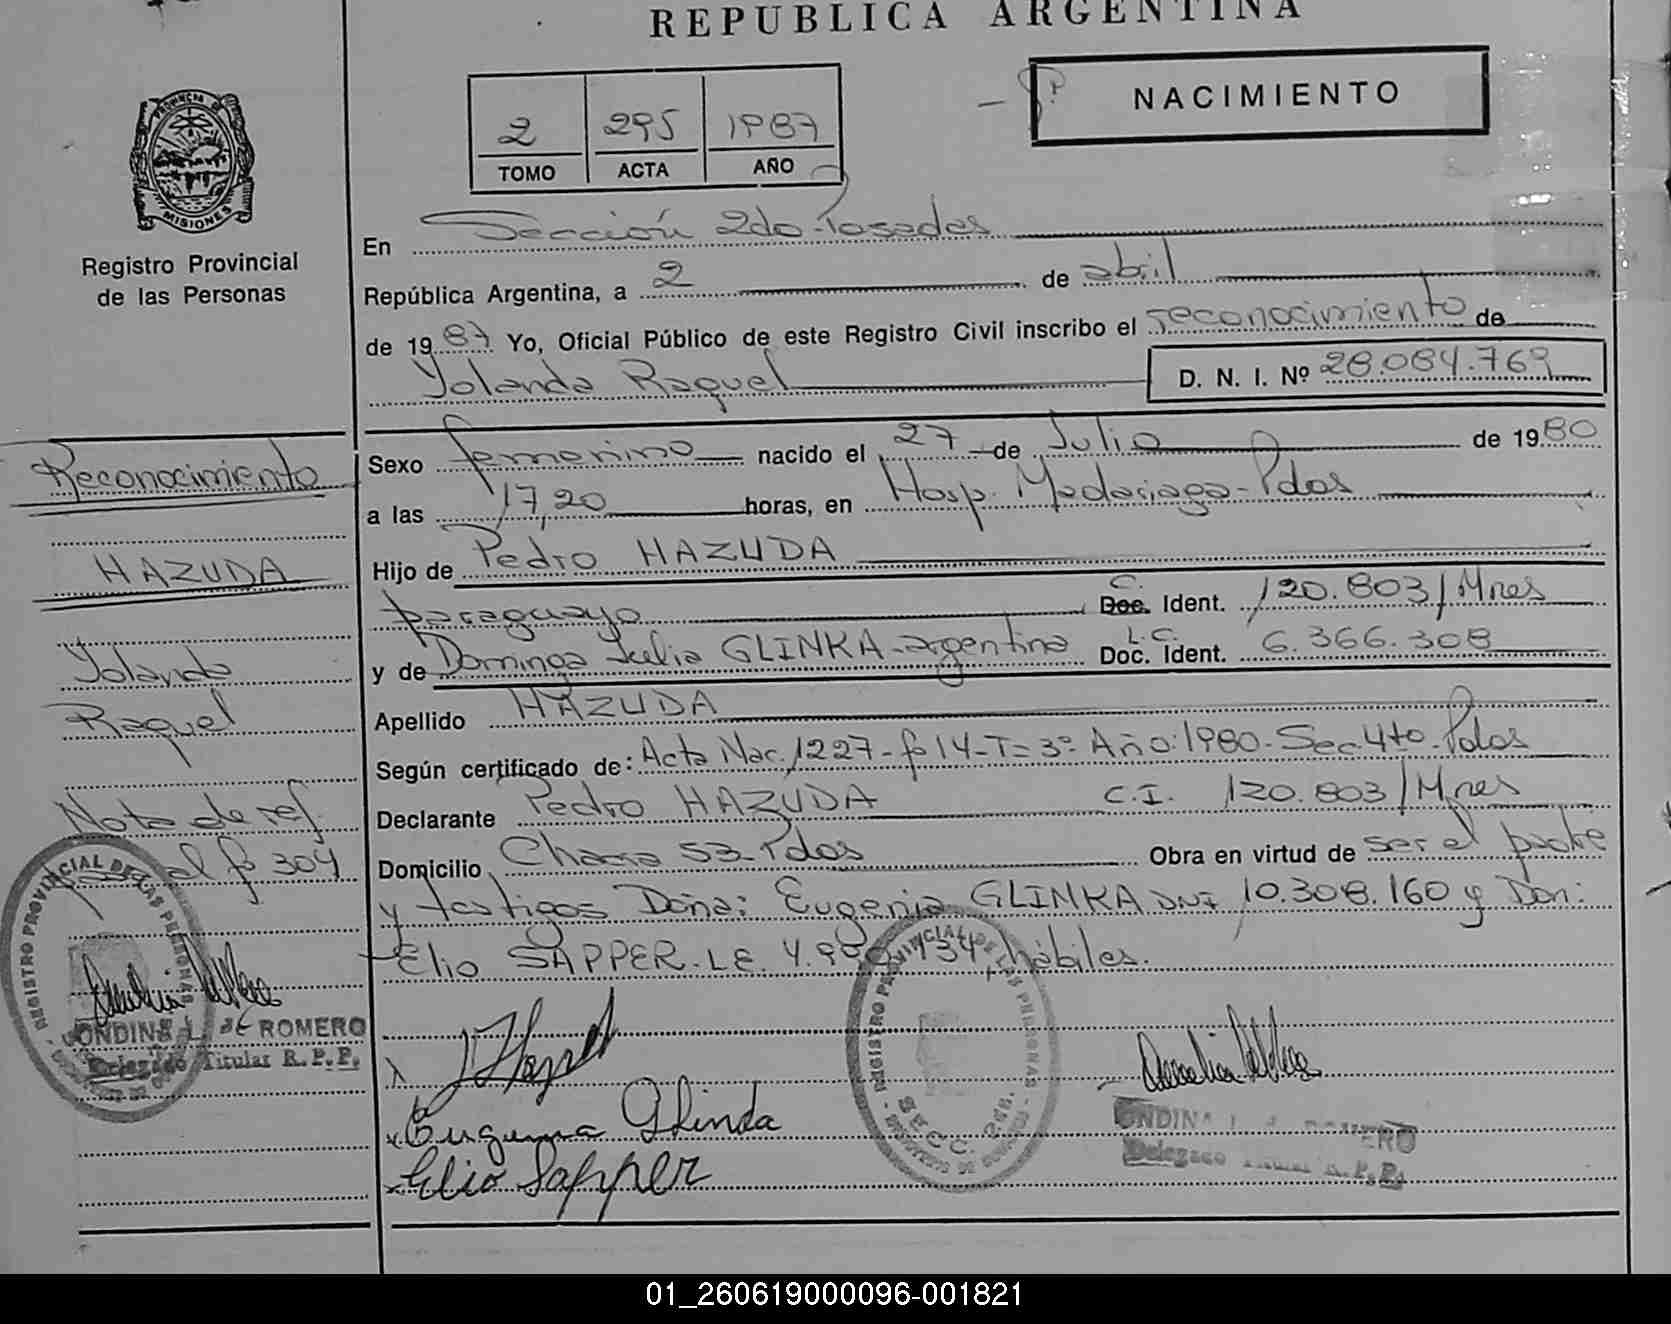 REPUBLICA ARGENTINA
NACIMIENTO
2 295 1987
TOMO ACTA AÑO
PROVINCIA DE MISIONES
Registro Provincial
de las Personas
En Sección 2do-Posadas
República Argentina, a 2 de abril
de 1987 Yo, Oficial Público de este Registro Civil inscribo el reconocimiento de
Yolanda Raquel D. N. I. Nº 28.084.769
Sexo femenino nacido el 27 de Julio de 1980
a las 17,20 horas, en Hosp. Madariaga-Pdas
Hijo de Pedro HAZUDA
paraguayo C. Doc. Ident. 120.803/Mnes
y de Dominga Julia GLINKA-argentina L.C. Doc. Ident. 6.366.308
Apellido HAZUDA
Según certificado de: Acta Nac. 1227-fº14-T=3º Año:1980-Sec 4to-Pdas
Declarante Pedro HAZUDA C.I. 120.803/Mnes
Domicilio Chacra 53-Pdas Obra en virtud de ser el padre
y testigos Doña: Eugenia GLINKA DNI 10.308.160 y Don:
Elio SAPPER-LE. hábiles.
Reconocimiento
HAZUDA
Yolanda
Raquel
Nota de ref.
al fº 304
REGISTRO PROVINCIAL DE LAS PERSONAS
ONDINA L. DE ROMERO
Delegado Titular R.P.P.
Eugenia Glinda
Elio Sapper
REGISTRO PROVINCIAL DE LAS PERSONAS
SECC. 2da.
ONDINA ROMERO
Delegado Titular R.P.P.
01_260619000096-001821